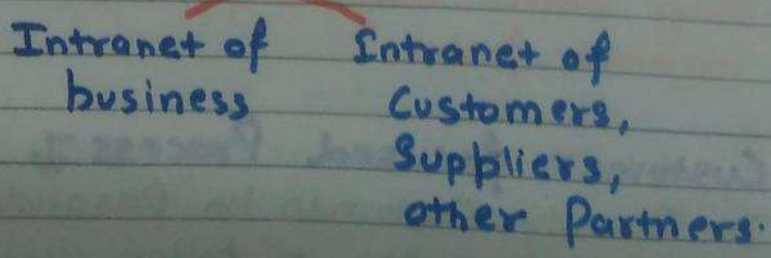 Intranet of
business
Intranet of
Customers,
Suppliers,
other Partners.